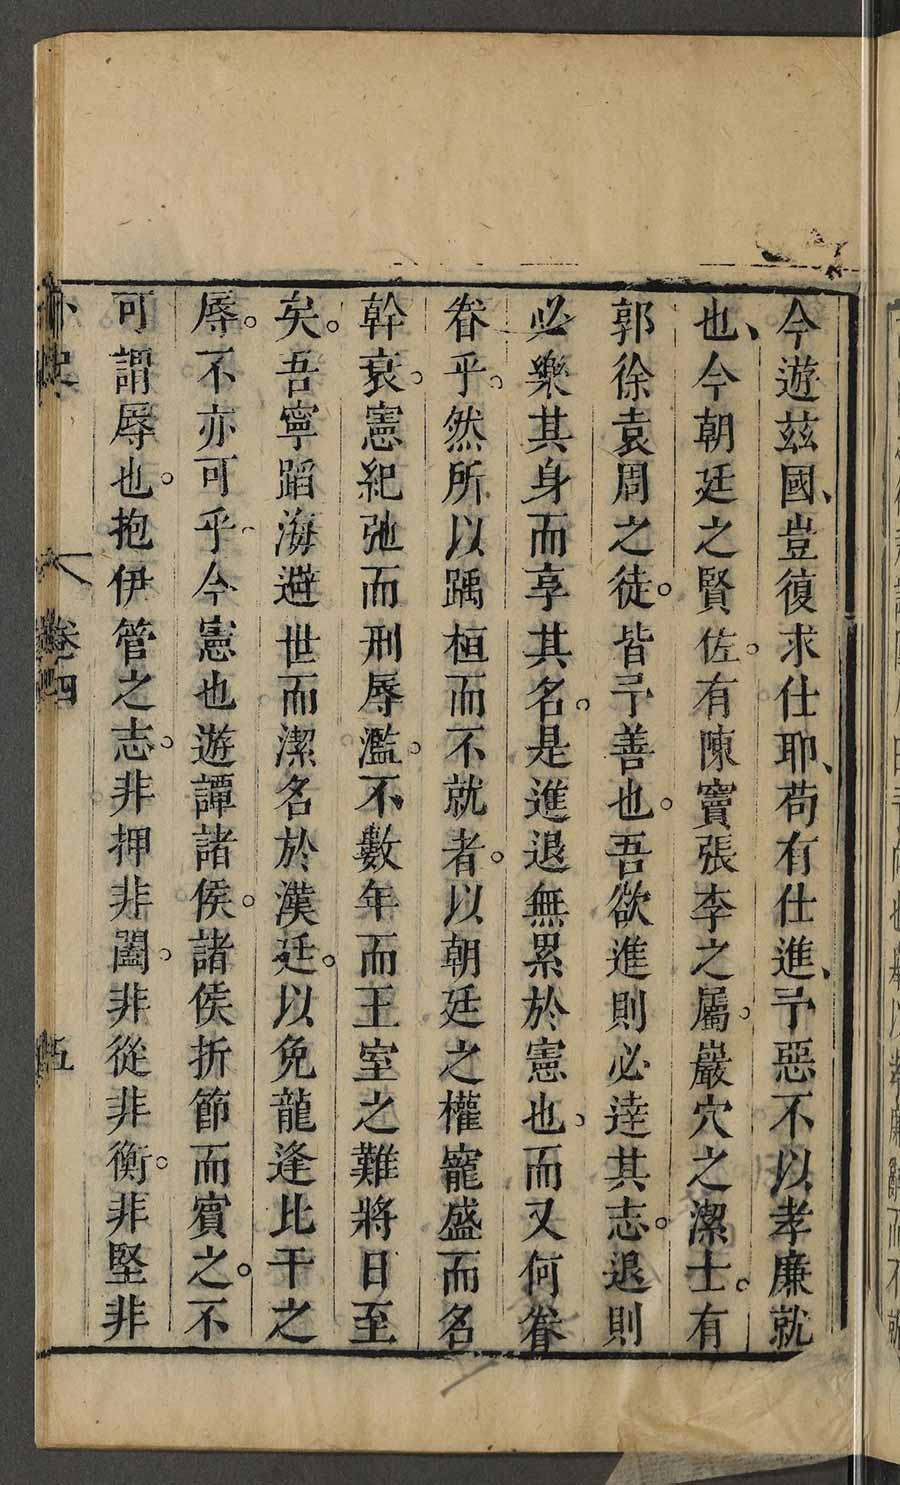 今遊茲國、豈復求仕耶、苟有仕進、予惡不以孝廉就
也、今朝廷之賢佐。有陳竇張李之屬。巖穴之潔士。有
郭徐袁周之徒。皆予善也。吾欲進則必達其志。退則
必樂其身而享其名。是進退無累於憲也。而又何眷
眷乎。然所以踽桓而不就者。以朝廷之權寵盛而名
幹衰。憲紀弛而刑辱濫。不數年而王室之難將日至
矣。吾寧蹈海避世而潔名於漢廷。以免龍逢比干之
辱。不亦可乎。今憲也遊譚諸侯。諸侯折節而賓之。不
可謂辱也。抱伊管之志。非押非闔。非從非衡。非堅非
卷四
五